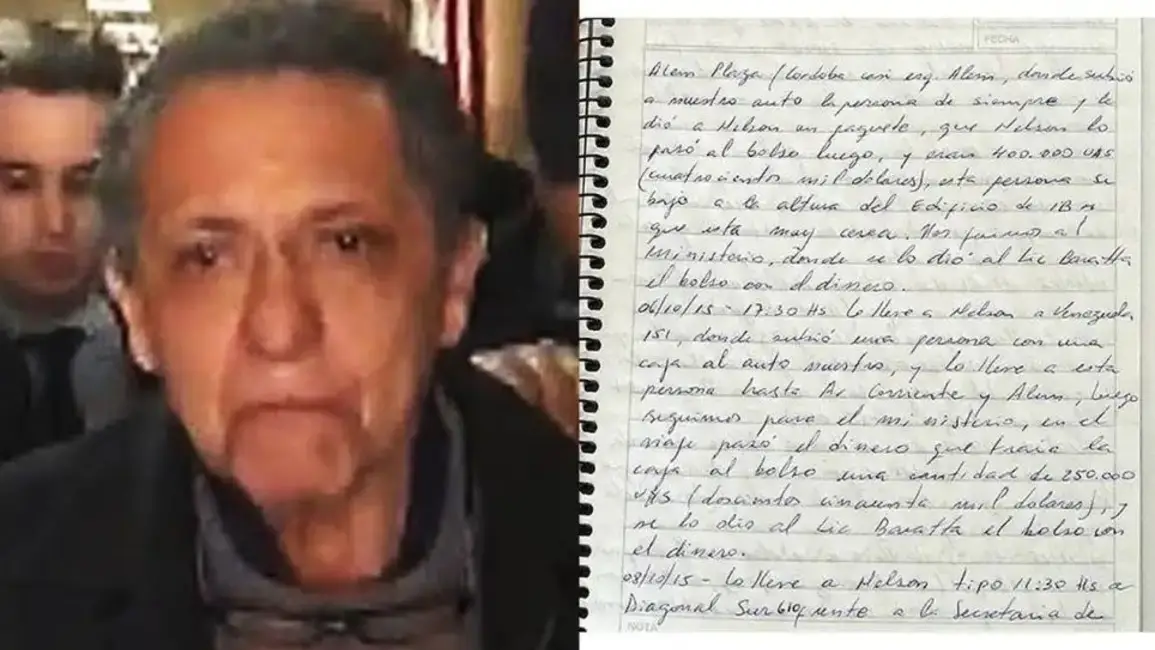 FECHA
Alem Plaza / Cordoba casi esq. Alem, donde subió
a nuestro auto la persona de siempre y le
dió a Nelson un paquete, que Nelson lo
pasó al bolso luego, y eran 400.000 U$S
(cuatrocientos mil dolares), esta persona se
bajó a la altura del Edificio de IBM
que esta muy cerca. Nos fuimos al
ministerio, donde se lo dió al Lic Baratta
el bolso con el dinero.
06/10/15 - 17:30 Hs lo lleve a Nelson a Venezuela
151, donde subió una persona con una
caja al auto nuestro, y lo lleve a esta
persona hasta Av Corriente y Alem, luego
seguimos para el ministerio, en el
viaje pasó el dinero que traia la
caja al bolso una cantidad de 250.000
U$S (doscientos cincuenta mil dolares), y
se lo dio al Lic Baratta el bolso con
el dinero.
08/10/15 - Lo lleve a Nelson tipo 11:30 Hs a
Diagonal Sur 610 frente a la Secretaria de
NOTA